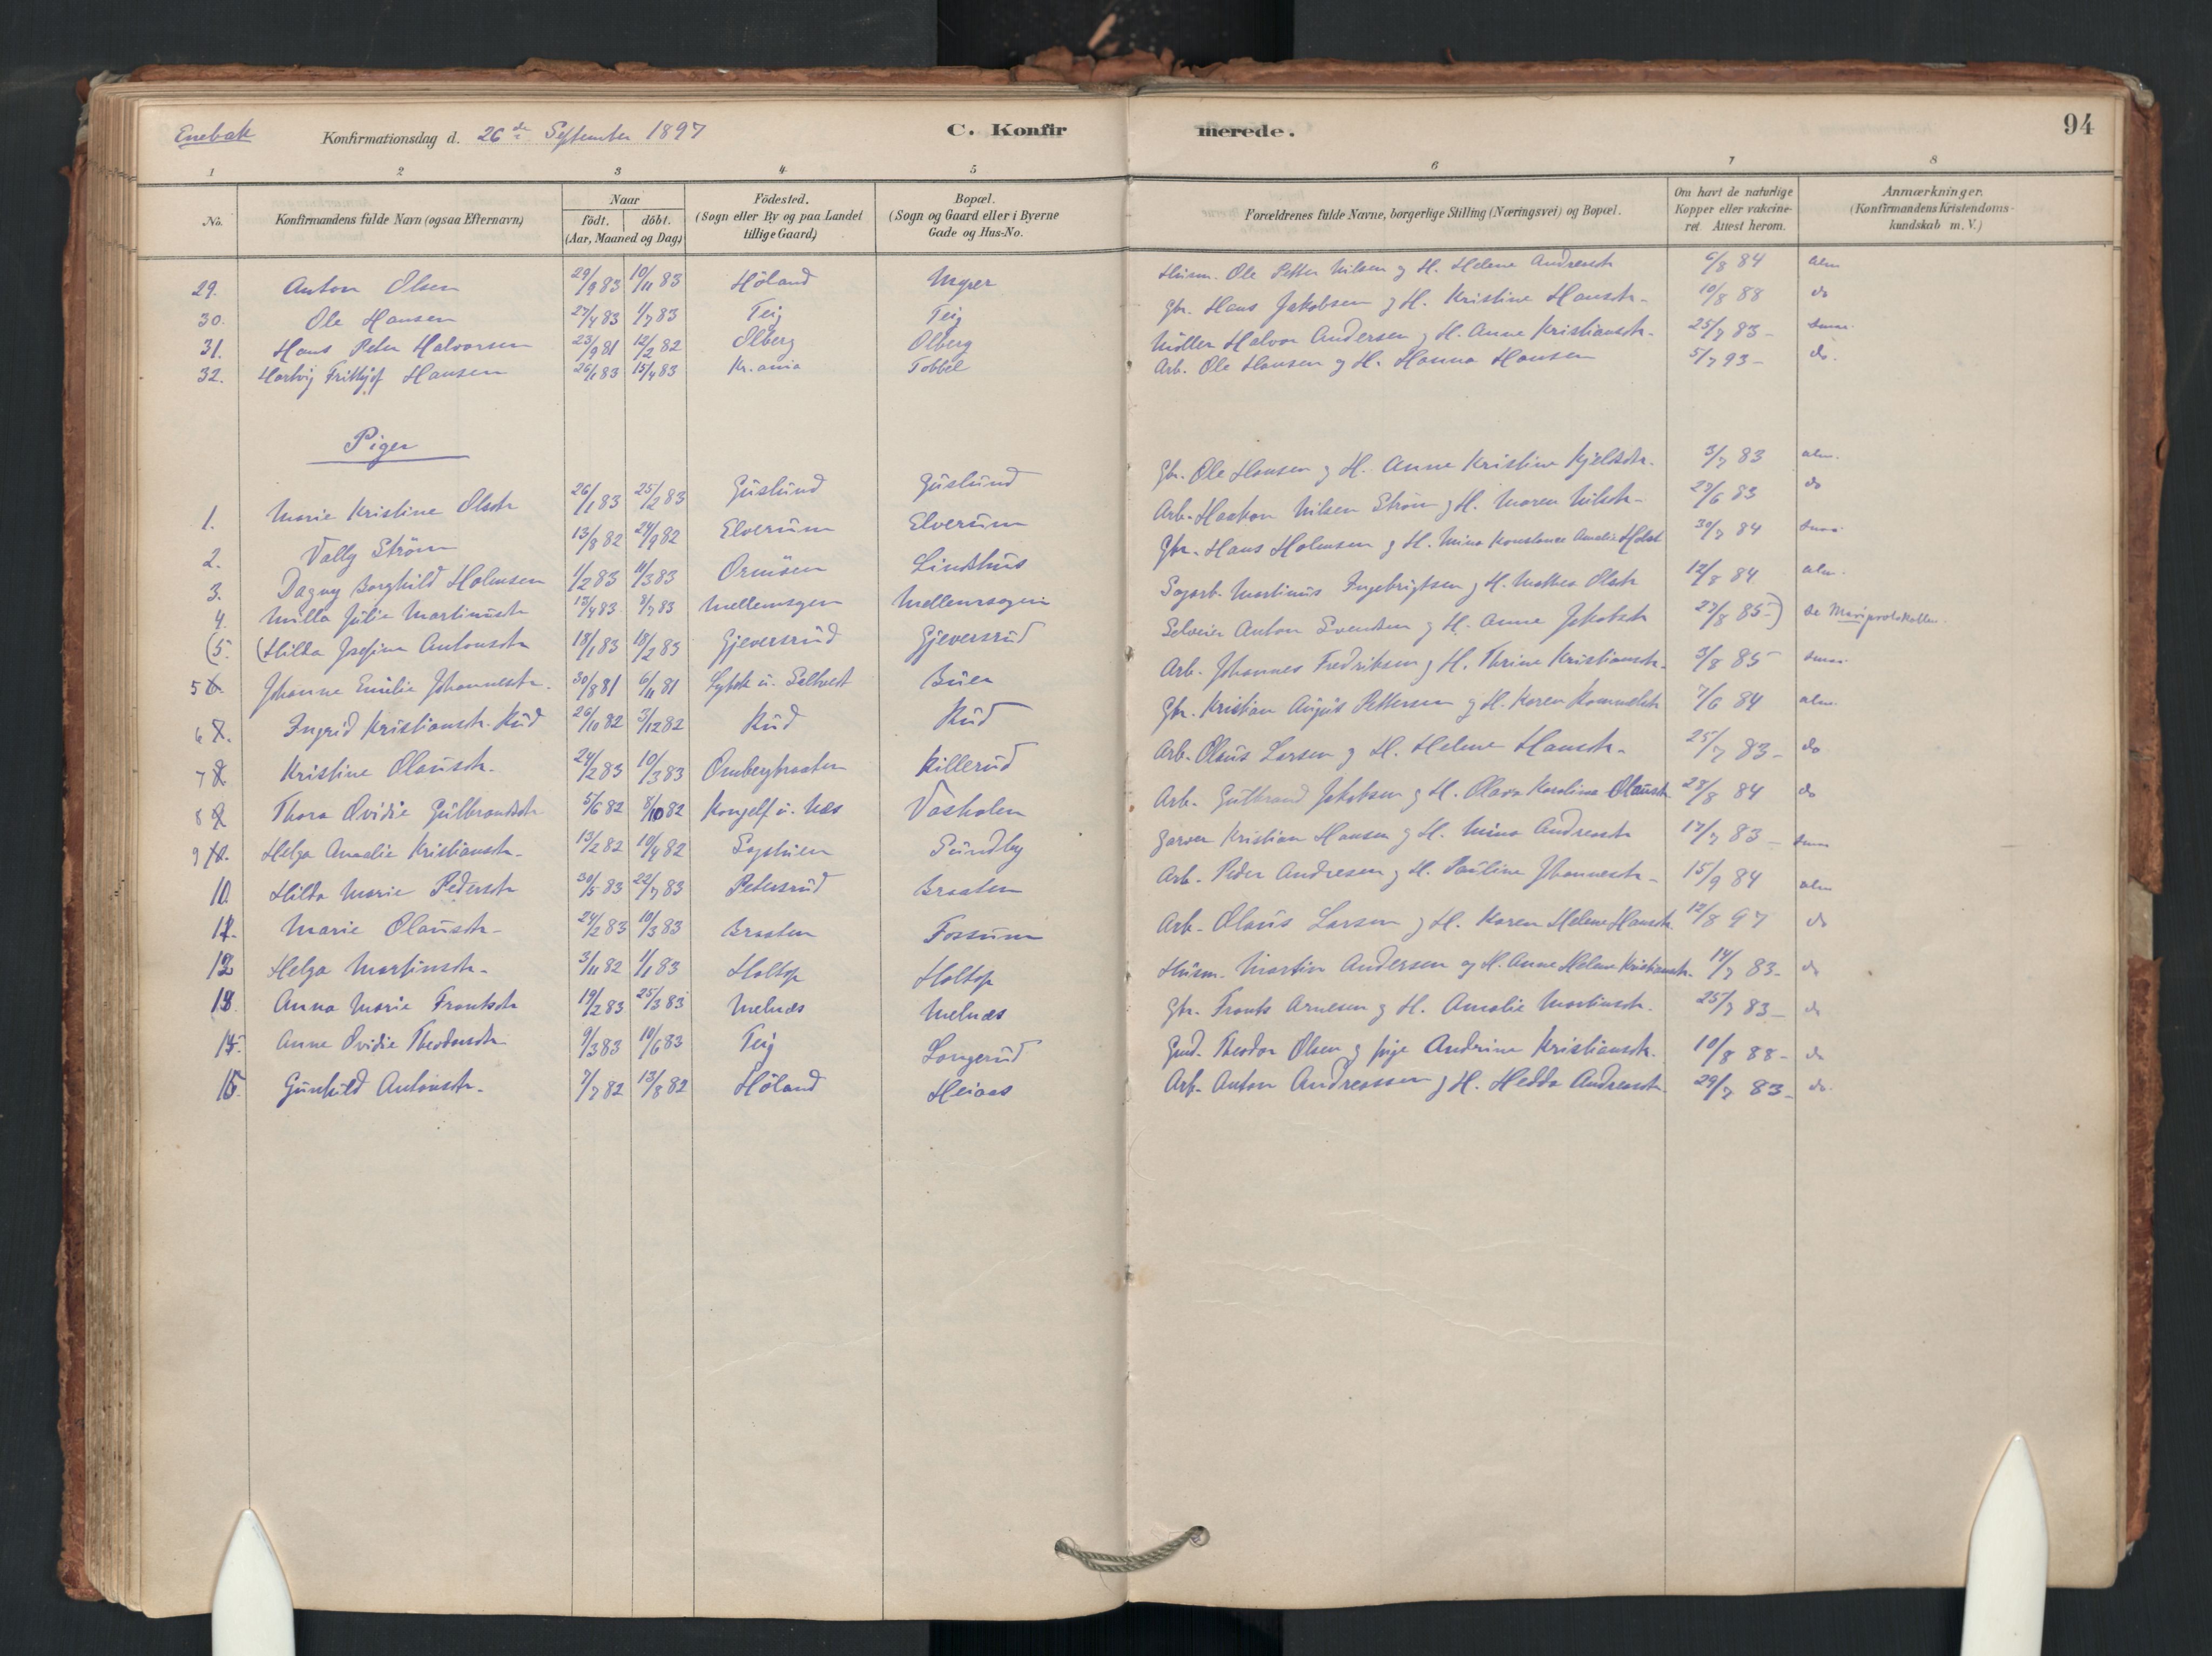 Enebak Konfirmationsdag d. 26de September 1897 C. Konfirmerede. 94
1 2 3 4 5 6 7 8
No. Konfirmandens fulde Navn (ogsaa Efternavn) Naar födt. döbt. (Aar, Maaned og Dag) Födested. (Sogn eller By og paa Landet tillige Gaard) Bopæl. (Sogn og Gaard eller i Byerne Gade og Hus-No. Forældrenes fulde Navne, borgerlige Stilling (Næringsvei) og Bopæl. Om havt de naturlige Kopper eller vakcineret. Attest herom. Anmærkninger. (Konfirmandens Kristendomskundskab m. V.)
29. Anton Olsen 29/9 83 10/11 83 Höland Myrer Husm. Ole Petter Nilsen og H. Helene Andreasdtr 6/8 84 alm
30. Ole Hansen 27/4 83 1/7 83 Teig Teig Gbr. Hans Jakobsen og H. Kristine Hansdtr. 10/8 88 do
31. Hans Peter Halvorsen 23/9 81 12/2 82 Olberg Olberg Möller Halvor Andersen og H. Anne Kristiansdtr. 25/7 83 -
32. Hartvig Frithjof Hansen 26/1 83 15/4 83 Kr.ania Tobbel Arb. Ole Hansen og H. Hanna Hansen 5/7 93 - do.
Piger
1. Marie Kristine Olsdtr 26/1 83 25/2 83 Guslund Guslund Gbr. Ole Hansen og H. Anne Kristine Kjelsdtr. 3/7 83 alm.
2. Vally Ström 13/8 82 24/9 82 Elverum Elverum Arb. Haakon Nilsen Ström og H. Maren Nilsdtr. 23/6 83 do
3. Dagny Borghild Holmsen 1/2 83 11/3 83 Ormöen Lindhus Gbr. Hans Holmsen og H. Mina Konstance Amalie Holst 30/7 84
4. Milla Julie Martinusdtr 13/4 83 8/7 83 Mellemsogen Mellemsogen Sagarb. Martinus Ingebrigtsen og H. Mathea Olsdtr 12/8 84 alm.
(5. (Hilda Josefine Antonsdtr 18/1 83 18/2 83 Gjeversrud Gjeversrud Selveier Anton Svendsen og H. Anne Jakobsdtr 27/8 85 -) Se Mariprotokollen.
5 6. Johanne Emilie Johannesdtr. 30/8 81 6/11 81 Buer Arb. Johannes Fredriksen og H. Thrine Kristiansdtr. 3/8 85
6 7. Ingrid Kristiansdtr. Rud 26/10 82 3/12 82 Rud Rud Gbr. Kristian August Pettersen og H. Karen 7/6 84 alm.
7 8. Kristine Olausdtr. 24/2 83 10/3 83 Ombergbraaten Killerud Arb. Olaus Larsen og H. Helene Hansdtr. 25/7 83 - do
8 9. Thora Ovidie Gulbrandsdtr 5/6 82 8/10 82 Kongelf u. Næs Vasholen Arb. Gulbrand Jakobsen og H. Olava Karoline Olausdtr. 28/8 84 do
9 10. Helga Amalie Kristiansdtr. 13/2 82 10/4 82 Sagstuen Sundby Garver Kristian Hansen og H. Mina Andreasdtr 17/7 83 -
10. Hilda Marie Pedersdtr 30/5 83 22/7 83 Petersrud Braaten Arb. Peder Andresen og H. Pauline Johannesdtr. 15/9 84 alm
11. Marie Olausdtr. 24/2 83 10/3 83 Braaten Fossum Arb. Olaus Larsen og H. Karen Helene Hansdtr. 12/8 97 do
12 Helga Martinsdtr. 3/11 82 1/1 83 Holtop Holtop Husm. Martin Andersen og H. Anne Helene Kristiansdtr. 14/7 83. do
13. Anna Marie Frantsdtr 19/2 83 25/3 83 Melnæs Melnæs Gbr. Frants Arnesen og H. Amalie Martinsdtr. 25/7 83 - do
14. Anne Ovidie Theodorsdtr 9/3 83 10/6 83 Teig Langerud Gmd. Theodor Olsen og pige Andrine Kristiansdtr. 10/8 88 - do
15. Gunhild Antonsdtr. 7/7 82 13/8 82 Höland Heiaas Arb. Anton Andreassen og H. Hedda Andreasdtr. 29/7 83 - do.